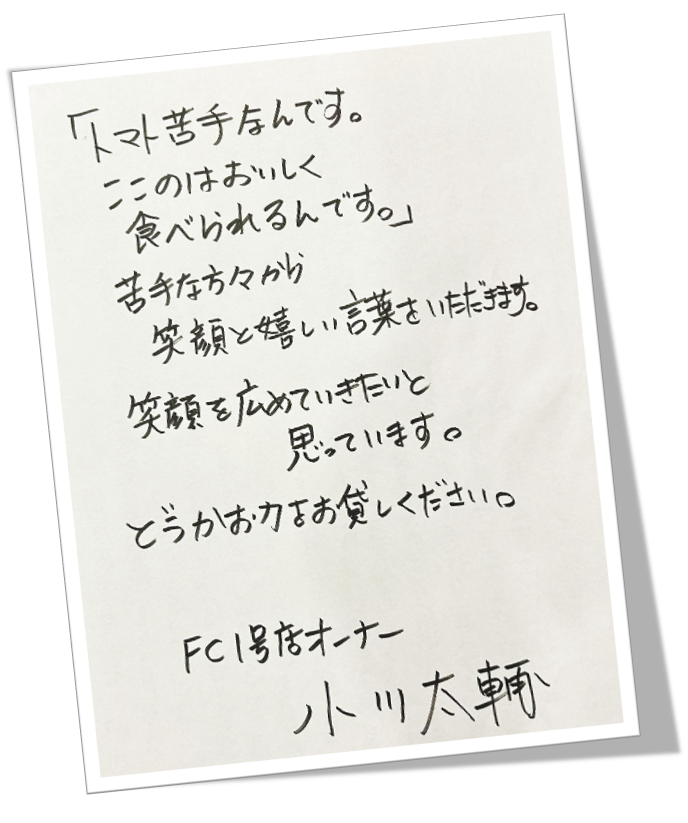 「トマト苦手なんです。
ここのはおいしく
食べられるんです。」
苦手な方々から
笑顔と嬉しい言葉をいただきます。
笑顔を広めていきたいと
思っています。
どうかお力をお貸しください。
FC1号店オーナー
小川太輔